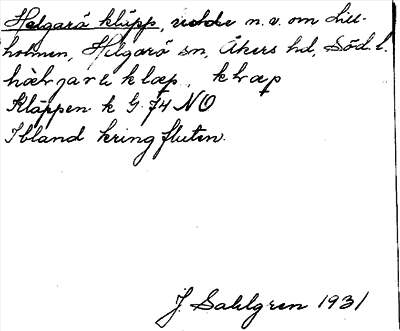 Helgarö kläpp, udde n.v. om Lill-
holmen, Helgarö sn, Åkers hd, Söd. l.
klæp, kḷæp
Kläppen k G. 74 NO
Ibland kringfluten.
J. Sahlgren 1931